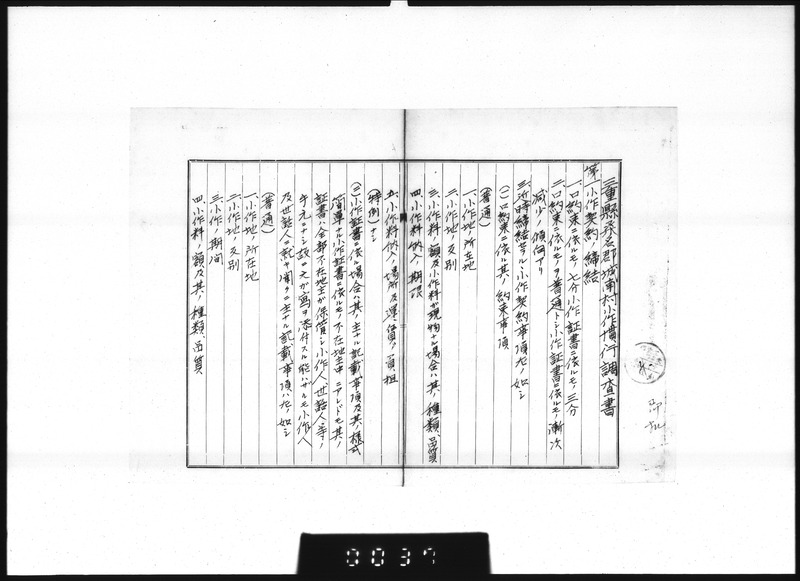 三重縣桑名郡城南村小作慣行調査書
第一 小作契約ノ締結
一、口約束ニ依ルモノ七分小作証書ニ依ルモノ三分
二、口約束ニ依ルモノヲ普通トシ小作証書ニ依ルモノ漸次
減少ノ傾向アリ
三、近時締結セラルル小作契約事項左ノ如シ
(一)口約束ニ依ル其ノ約束事項
(普通)
一、小作地ノ所在地
二、小作地ノ反別
三、小作料ノ額及小作料カ現物ナル場合ハ其ノ種類品質
四、小作料納入ノ期限
五、小作料納入ノ場所及運賃ノ負担
(特例)ナシ
(二)小作証書ニ依ル場合ハ其ノ主ナル記載事項及其ノ様式
簡単ナル小作証書ニ依ルモノ不在地主中ニアレドモ其ノ
証書ハ全部不在地主ガ保管シ小作人、世話人等ノ
手元ニナシ故ニ之ガ寫ヲ添付スル能ハザルモ小作人
及世話人ニ就キ聞クニ主ナル記載事項ハ左ノ如シ
(普通)
一、小作地ノ所在地
二、小作地ノ反別
三、小作ノ期间
四、小作料ノ額及其ノ種類品質
0037